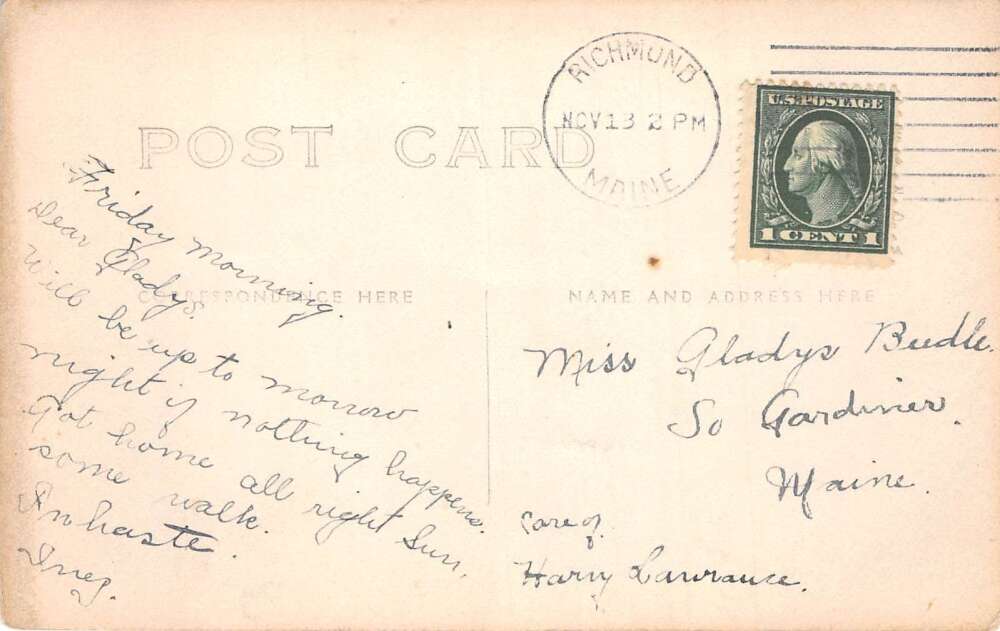 POST CARD
RICHMOND
NOV 13 2 PM
MAINE
U.S. POSTAGE
1 CENT 1
CORRESPONDENCE HERE
NAME AND ADDRESS HERE
Friday Morning.
Dear Gladys.
Will be up to morrow
night if nothing happens.
Got home all right Sun,
some walk.
In haste.
Inez.
Miss Gladys Beedle.
So Gardiner.
Maine.
Care of.
Harry Lawrance.